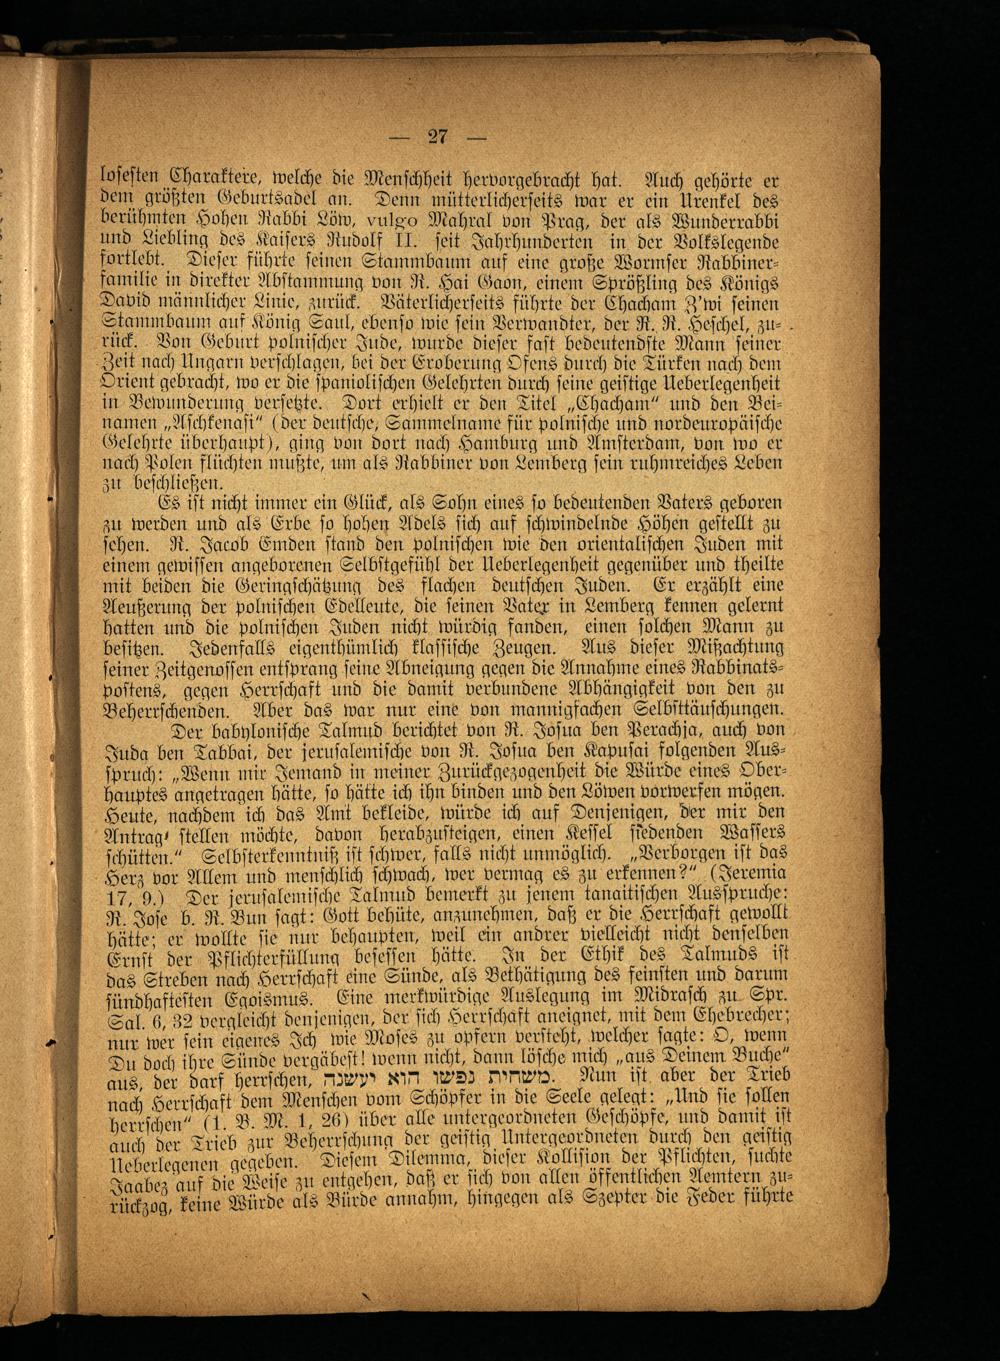 — 27 —
losesten Charaktere, welche die Menschheit hervorgebracht hat. Auch gehörte er
dem größten Geburtsadel an. Denn mütterlicherseits war er ein Urenkel des
berühmten Hohen Rabbi Löw, vulgo Mahral von Prag, der als Wunderrabbi
und Liebling des Kaisers Rudolf II. seit Jahrhunderten in der Volkslegende
fortlebt. Dieser führte seinen Stammbaum auf eine große Wormser Rabbiner-
familie in direkter Abstammung von R. Hai Gaon, einem Sprößling des Königs
David männlicher Linie, zurück. Väterlicherseits führte der Chacham Z'wi seinen
Stammbaum auf König Saul, ebenso wie sein Verwandter, der R. R. Heschel, zu-
rück. Von Geburt polnischer Jude, wurde dieser fast bedeutendste Mann seiner
Zeit nach Ungarn verschlagen, bei der Eroberung Ofens durch die Türken nach dem
Orient gebracht, wo er die spaniolischen Gelehrten durch seine geistige Ueberlegenheit
in Bewunderung versetzte. Dort erhielt er den Titel „Chacham“ und den Bei-
namen „Aschkenasi“ (der deutsche, Sammelname für polnische und nordeuropäische
Gelehrte überhaupt), ging von dort nach Hamburg und Amsterdam, von wo er
nach Polen flüchten mußte, um als Rabbiner von Lemberg sein ruhmreiches Leben
zu beschließen.
Es ist nicht immer ein Glück, als Sohn eines so bedeutenden Vaters geboren
zu werden und als Erbe so hohen Adels sich auf schwindelnde Höhen gestellt zu
sehen. R. Jacob Emden stand den polnischen wie den orientalischen Juden mit
einem gewissen angeborenen Selbstgefühl der Ueberlegenheit gegenüber und theilte
mit beiden die Geringschätzung des flachen deutschen Juden. Er erzählt eine
Aeußerung der polnischen Edelleute, die seinen Vater in Lemberg kennen gelernt
hatten und die polnischen Juden nicht würdig fanden, einen solchen Mann zu
besitzen. Jedenfalls eigenthümlich klassische Zeugen. Aus dieser Mißachtung
seiner Zeitgenossen entsprang seine Abneigung gegen die Annahme eines Rabbinats-
postens, gegen Herrschaft und die damit verbundene Abhängigkeit von den zu
Beherrschenden. Aber das war nur eine von mannigfachen Selbsttäuschungen.
Der babylonische Talmud berichtet von R. Josua ben Perachja, auch von
Juda ben Tabbai, der jerusalemische von R. Josua ben Kapusai folgenden Aus-
spruch: „Wenn mir Jemand in meiner Zurückgezogenheit die Würde eines Ober-
hauptes angetragen hätte, so hätte ich ihn binden und den Löwen vorwerfen mögen.
Heute, nachdem ich das Amt bekleide, würde ich auf Denjenigen, der mir den
Antrag stellen möchte, davon herabzusteigen, einen Kessel siedenden Wassers
schütten.“ Selbsterkenntniß ist schwer, falls nicht unmöglich. „Verborgen ist das
Herz vor Allem und menschlich schwach, wer vermag es zu erkennen?“ (Jeremia
17, 9.) Der jerusalemische Talmud bemerkt zu jenem tanaitischen Ausspruche:
R. Jose b. R. Bun sagt: Gott behüte, anzunehmen, daß er die Herrschaft gewollt
hätte; er wollte sie nur behaupten, weil ein andrer vielleicht nicht denselben
Ernst der Pflichterfüllung besessen hätte. In der Ethik des Talmuds ist
das Streben nach Herrschaft eine Sünde, als Bethätigung des feinsten und darum
sündhaftesten Egoismus. Eine merkwürdige Auslegung im Midrasch zu Spr.
Sal. 6, 32 vergleicht denjenigen, der sich Herrschaft aneignet, mit dem Ehebrecher;
nur wer sein eigenes Ich wie Moses zu opfern versteht, welcher sagte: O, wenn
Du doch ihre Sünde vergäbest! wenn nicht, dann lösche mich „aus Deinem Buche“
aus, der darf herrschen, משחית נפשו הוא יעשנה. Nun ist aber der Trieb
nach Herrschaft dem Menschen vom Schöpfer in die Seele gelegt: „Und sie sollen
herrschen“ (1. B. M. 1, 26) über alle untergeordneten Geschöpfe, und damit ist
auch der Trieb zur Beherrschung der geistig Untergeordneten durch den geistig
Ueberlegenen gegeben. Diesem Dilemma, dieser Kollision der Pflichten, suchte
Jaabez auf die Weise zu entgehen, daß er sich von allen öffentlichen Aemtern zu-
rückzog, keine Würde als Bürde annahm, hingegen als Szepter die Feder führte